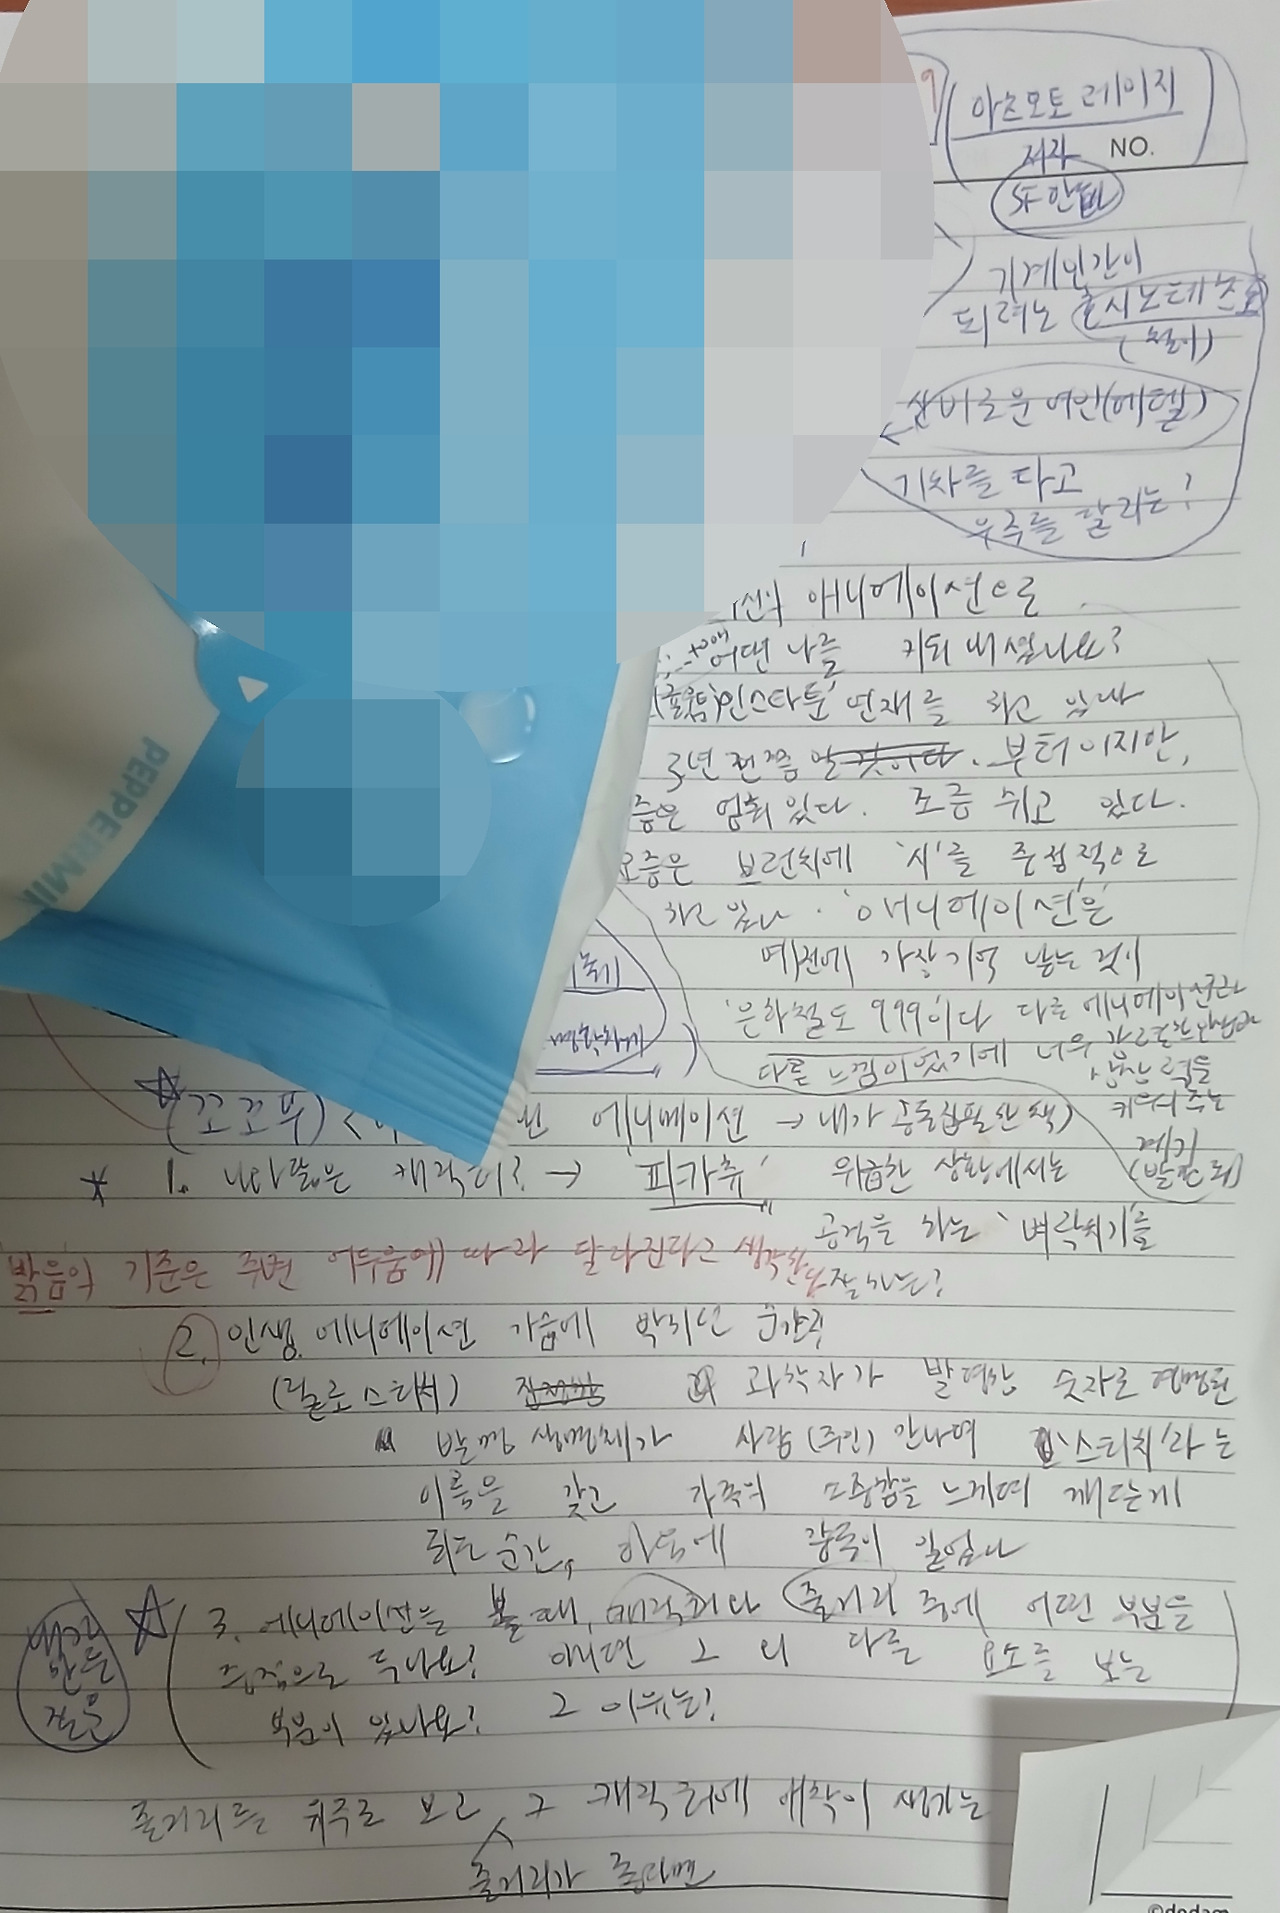 9
마츠모토 레이지
저자 NO.
SF만화
기계인간이
되려는 호시노테츠로
(철이)
신비로운 여인(메텔)
기차를 타고
우주를 달리는?
애니메이션으로
어떤 나를 키워 내셨나요?
인스타툰' 연재를 하고 있다
3년 전쯤 부터이지만,
즘은 멈춰있다. 조금 쉬고 있다.
요즘은 브런치에 '시'를 중점적으로
하고 있다. '애니메이션'은
예전에 가장 기억 남는 것이
'은하철도 999'이다 다른 애니메이션과
다른 느낌이었기에 나의
상상력을
키워 주는
계기
(발판 돼)
PEPPERMIN
(꼬꼬무) 애니메이션 → 내가 공동집필한 책)
1. 나와 닮은 캐릭터? → '피카츄' 위급한 상황에서는
공격을 하는 '벼락치기'를
잘하는?
밝음의 기준은 주변 어두움에 따라 달라진다고 생각한다
2. 인생 애니메이션 가슴에 박히던 순간?
(릴로 스티치) 과학자가 발명한 숫자로 명명된
생명체가 사람(주인) 만나며 '스티치'라는
이름을 갖고 가족의 소중함을 느끼며 깨닫게
되는 순간, 마음에 감동이 일었다
내가
만든
질문
3. 애니메이션을 볼 때, 캐릭터나 줄거리 중에 어떤 부분을
중점으로 두나요? 아니면 그 외 다른 요소를 보는
부분이 있나요? 그 이유는?
줄거리를 위주로 보고, 그 캐릭터에 애착이 생기는
줄거리가 좋다면
©dodam